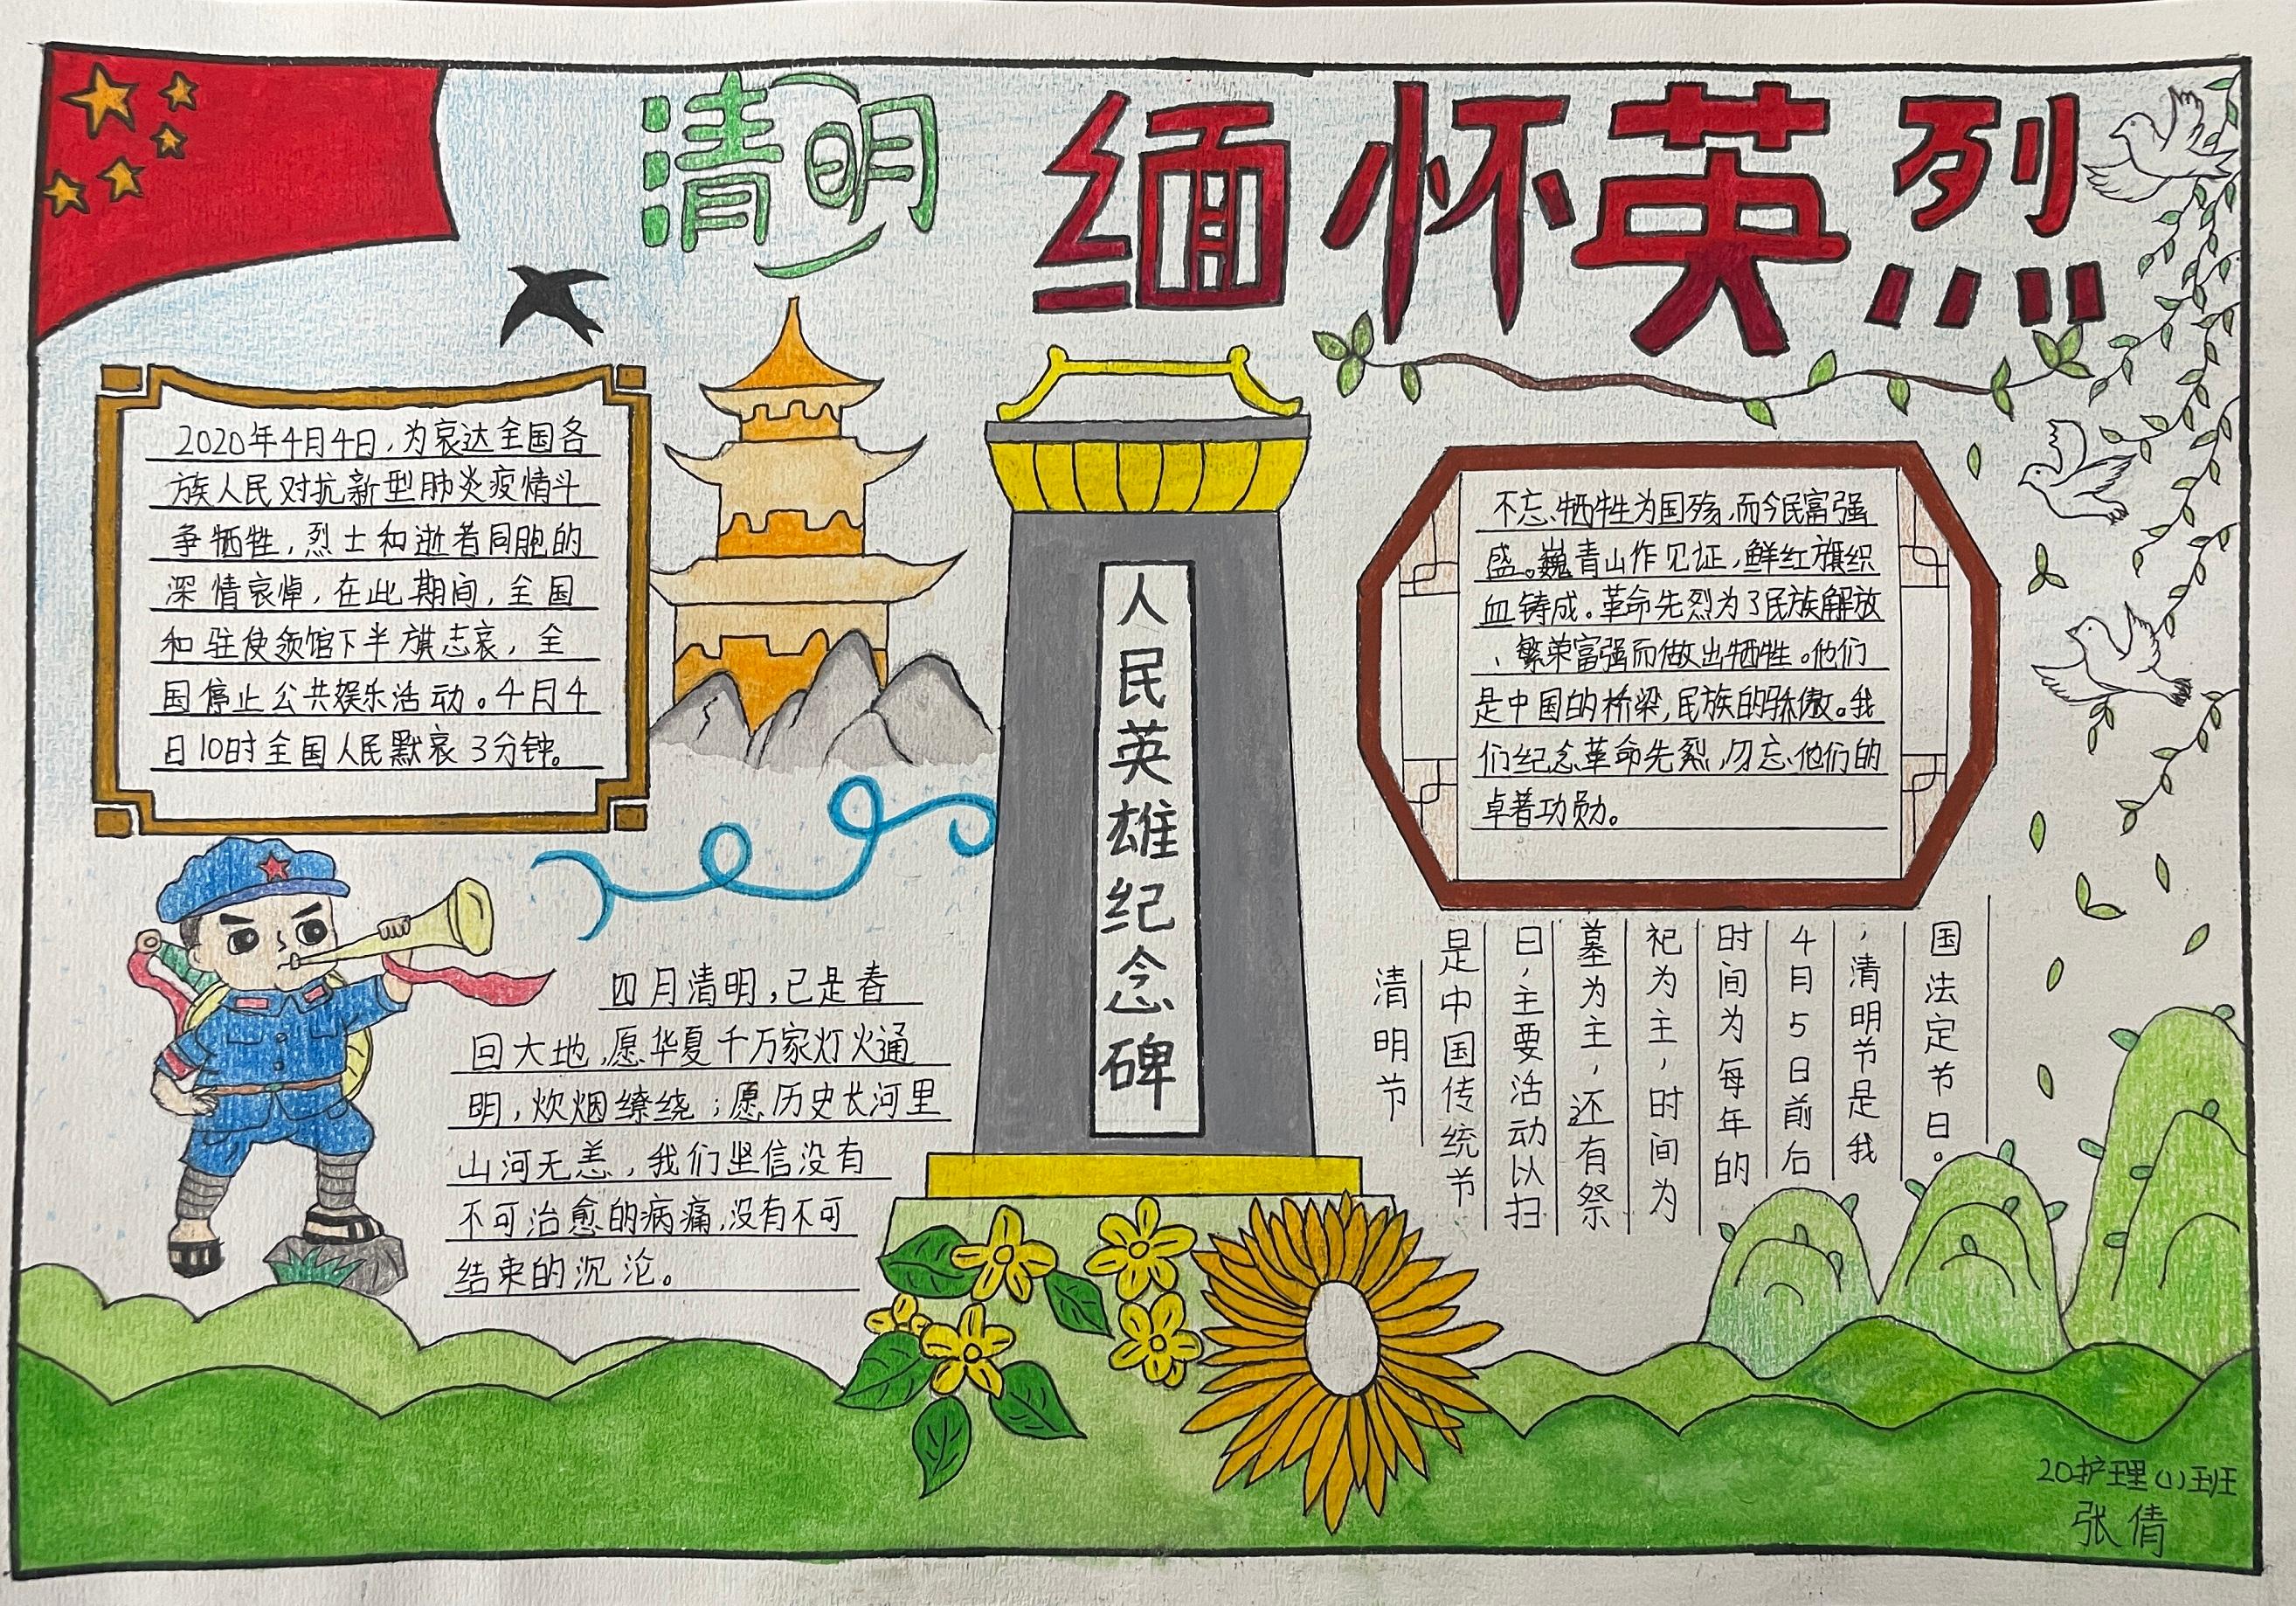 清明
缅怀英烈
2020年4月4日,为哀达全国各
族人民对抗新型肺炎疫情斗
争牺牲,烈士和逝者同胞的
深情哀悼,在此期间,全国
和驻使领馆下半旗志哀,全
国停止公共娱乐活动。4月4
日10时全国人民默哀3分钟。
人民英雄纪念碑
不忘牺牲为国殇,而今民富强
盛。巍青山作见证,鲜红旗织
血铸成。革命先烈为了民族解放
、繁荣富强而做出牺牲。他们
是中国的桥梁,民族的骄傲。我
们纪念革命先烈,勿忘他们的
卓著功勋。
四月清明,已是春
回大地,愿华夏千万家灯火通
明,炊烟缭绕;愿历史长河里
山河无恙,我们坚信没有
不可治愈的病痛,没有不可
结束的沉沦。
清明节
是中国传统节
日,主要活动以扫
墓为主,还有祭
祀为主,时间为
时间为每年的
4月5日前后
,清明节是我
国法定节日。
20护理(1)班
张倩